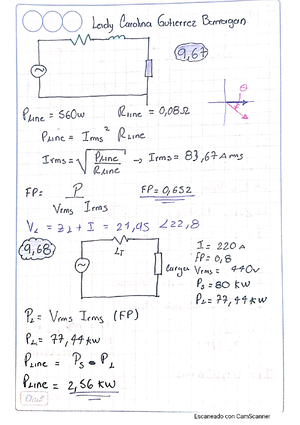 Leidy Carolina Gutierrez Barragan
9,67
θ
PLine = 560w RLine = 0,08Ω
PLine = Irms² RLine
Irms = √ PLine / RLine → Irms = 83,67 Arms
FP = P / Vrms Irms FP = 0,652
VL = ZL + I = 21,95 ∠22,8
9,68
LI
carga
I = 220 A
FP = 0,8
Vrms = 440v
Ps = 80 kW
PL = 77,44 kW
PL = Vrms Irms (FP)
PL = 77,44 kW
PLine = Ps - PL
PLine = 2,56 kW
Escaneado con CamScanner